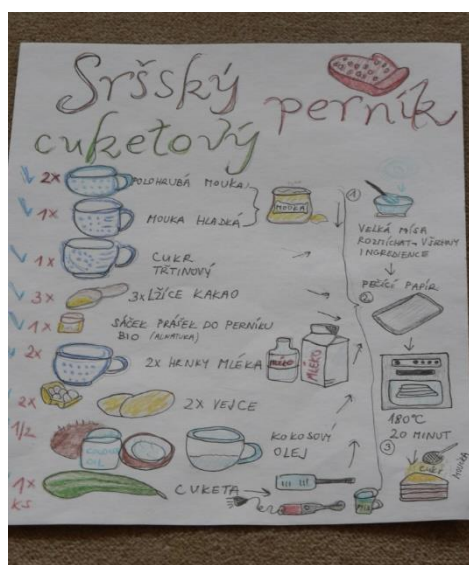 Sršský perník
cuketový
2x POLOHRUBÁ MOUKA
1x MOUKA HLADKÁ
MOUKA
1x CUKR
TŘTINOVÝ
3x 3x LŽÍCE KAKAO
1x SÁČEK PRÁŠEK DO PERNÍKU
BIO (ALNATURA)
2x 2x HRNKY MLÉKA
MLÉKO
2x 2x VEJCE
1/2 KOKOSOVÝ
OLEJ
OIL
1x
KS
CUKETA
1
VELKÁ MÍSA
ROZMÍCHAT VŠECHNY
INGREDIENCE
PEČÍCÍ PAPÍR
2
180°C
20 MINUT
3